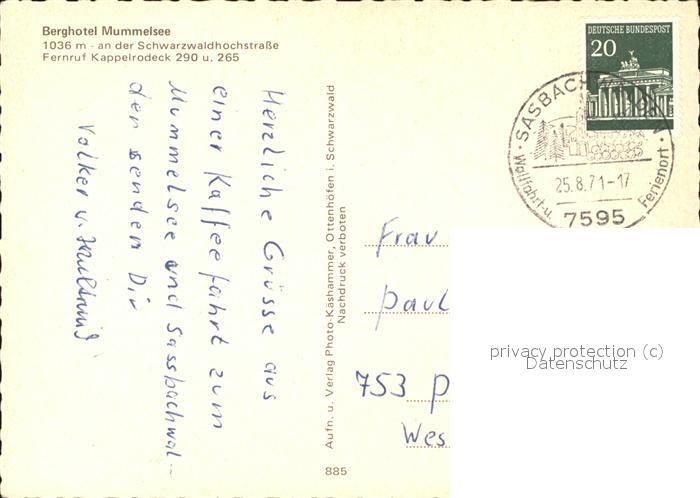 Berghotel Mummelsee
1036 m - an der Schwarzwaldhochstraße
Fernruf Kappelrodeck 290 u. 265
Herzliche Grüsse aus
einer Kaffeefahrt zum
Mummelsee und Sassbachwal-
den senden Dir
Volker u.
Aufn. u. Verlag Photo-Käshammer, Ottenhöfen i. Schwarzwald
Nachdruck verboten
885
DEUTSCHE BUNDESPOST
20
SASBACH
25.8.71-17
Wallfahrt-u. Ferienort
7595
Frau
Paul
753 P
Wes
privacy protection (c)
Datenschutz